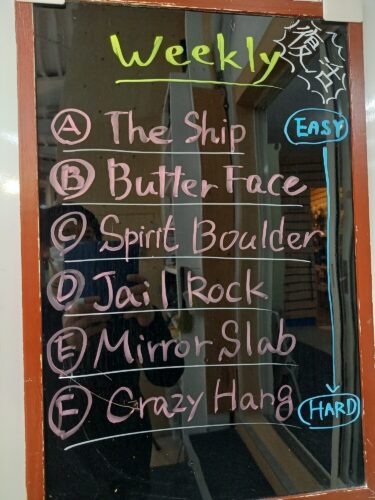 Weekly
復活
EASY
Ⓐ The Ship
Ⓑ Butter Face
Ⓒ Spirit Boulder
Ⓓ Jail Rock
Ⓔ Mirror Slab
Ⓕ Crazy Hang
HARD